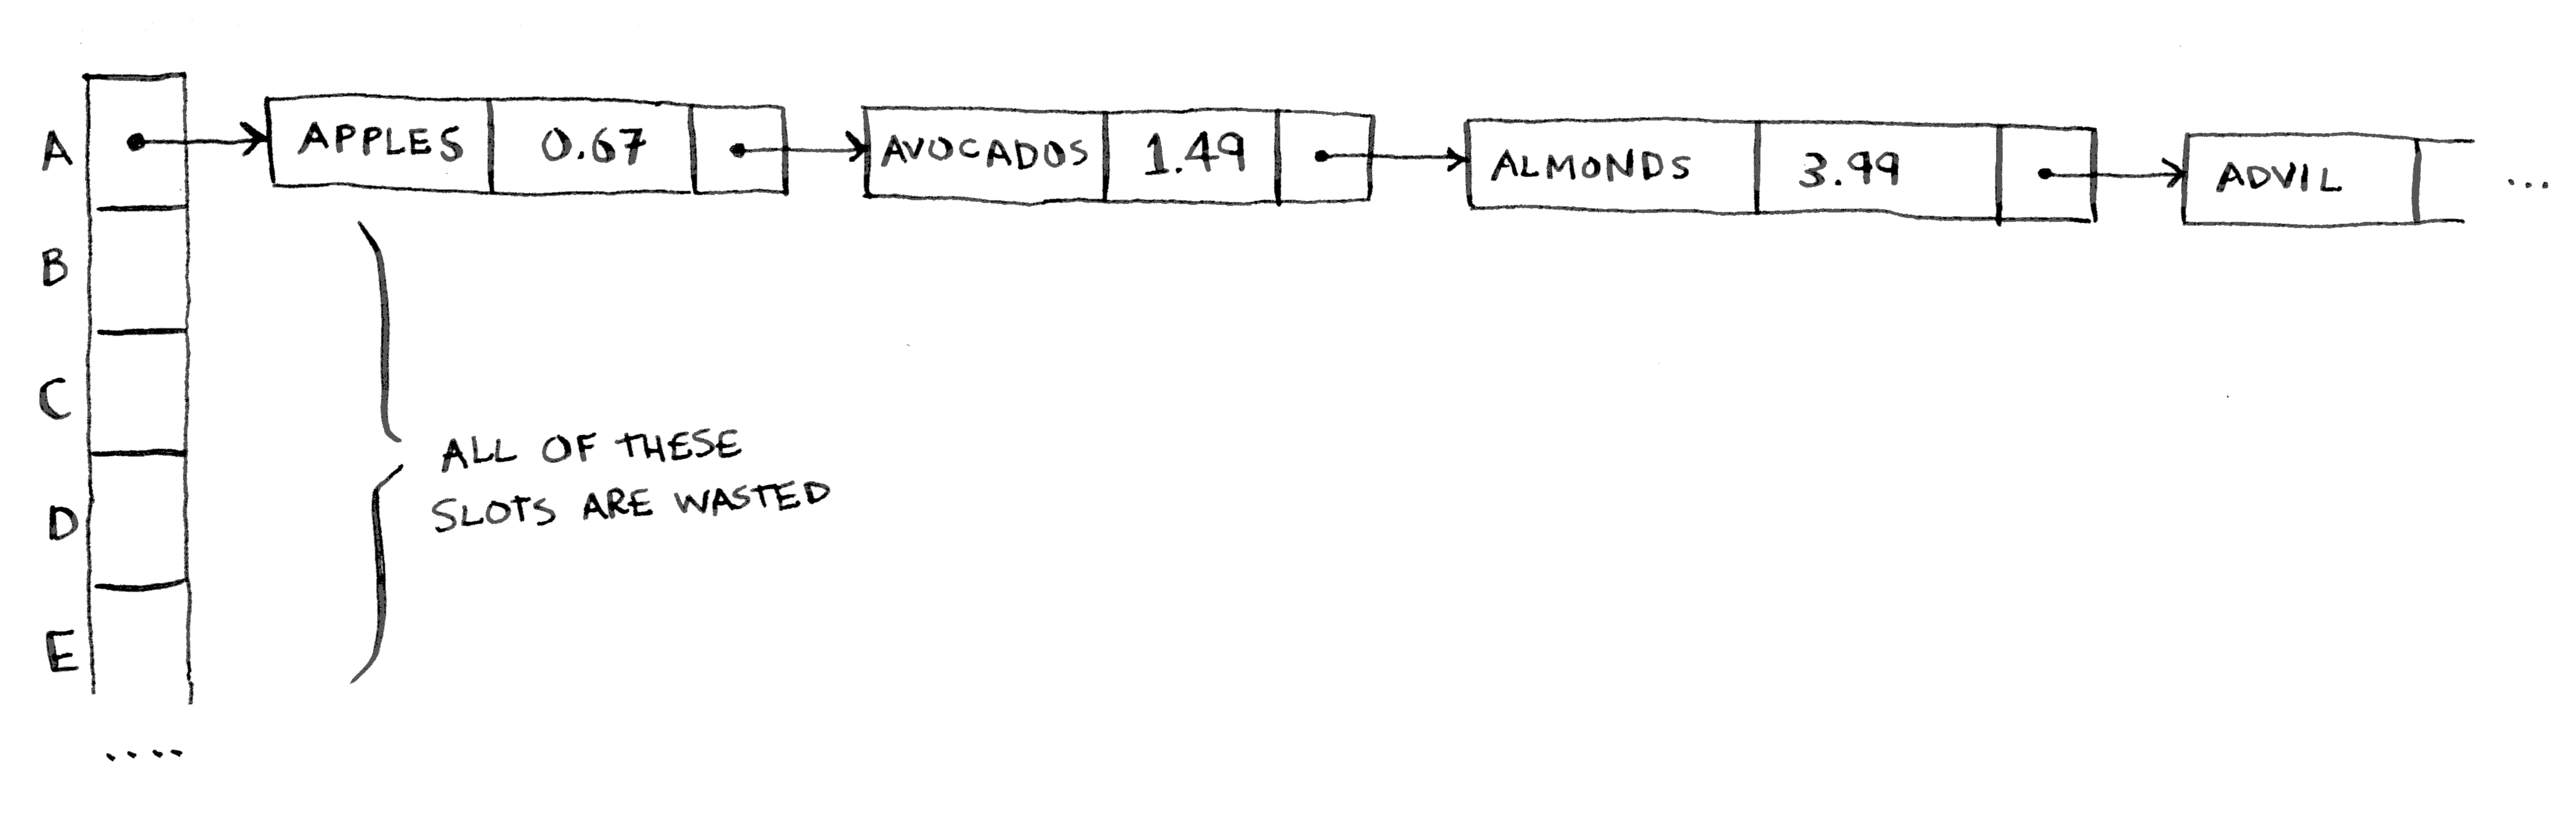 A APPLES 0.67 AVOCADOS 1.49 ALMONDS 3.99 ADVIL ...
B
C
ALL OF THESE
SLOTS ARE WASTED
D
E
....